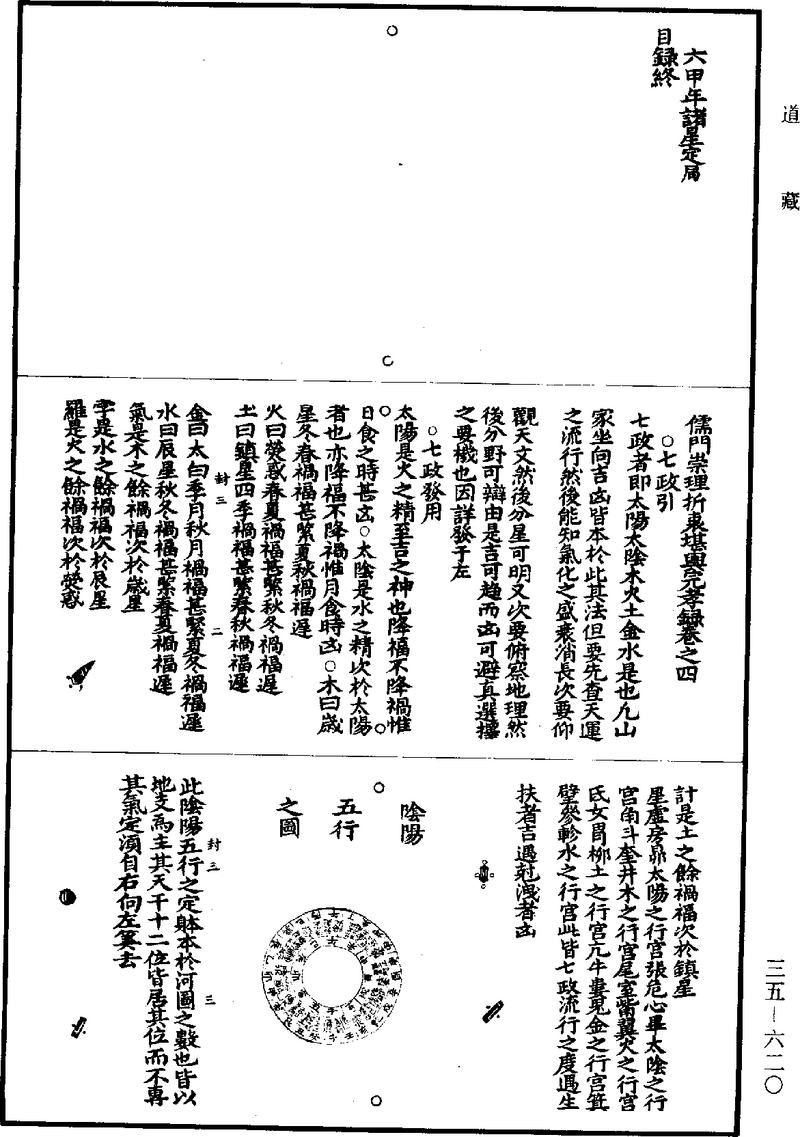 道藏
六甲年諸星定局
目録終
儒門崇理折衷堪輿完孝録卷之四
○七政引
七政者即太陽太陰木火土金水是也凡山
家坐向吉凶皆本於此其法但要先查天運
之流行然後能知氣化之盛衰消長次要仰
觀天文然後分星可明又次要俯察地理然
後分野可辯由是吉可趨而凶可避真選擇
之要機也因詳發于左
○七政發用
太陽是火之精至吉之神也降福不降禍惟
日食之時甚凶○太陰是水之精次於太陽
者也亦降福不降禍惟月食時凶○木曰歲
星冬春禍福甚緊夏秋禍福遲
火曰熒惑春夏禍福甚緊秋冬禍福遲
土曰鎮星四季禍福甚緊春秋禍福遲
封三
二
金曰太白季月秋月禍福甚緊夏冬禍福遲
水曰辰星秋冬禍福甚緊春夏禍福遲
氣是木之餘禍福次於歲星
孛是水之餘禍福次於辰星
羅是火之餘禍福次於熒惑
計是土之餘禍福次於鎮星
星虛房昴太陽之行宮張危心畢太陰之行
宮角斗奎井木之行宮尾室觜翼火之行宮
氐女胃柳土之行宮亢牛婁鬼金之行宮箕
壁參軫水之行宮此皆七政流行之度遇生
扶者吉遇尅洩者凶
陰陽
五行
之圖
封三
三
此陰陽五行之定躰本於河圖之數也皆以
地支爲主其天干十二位皆居其位而不專
其氣定須自右向左筭去
三五—六二〇